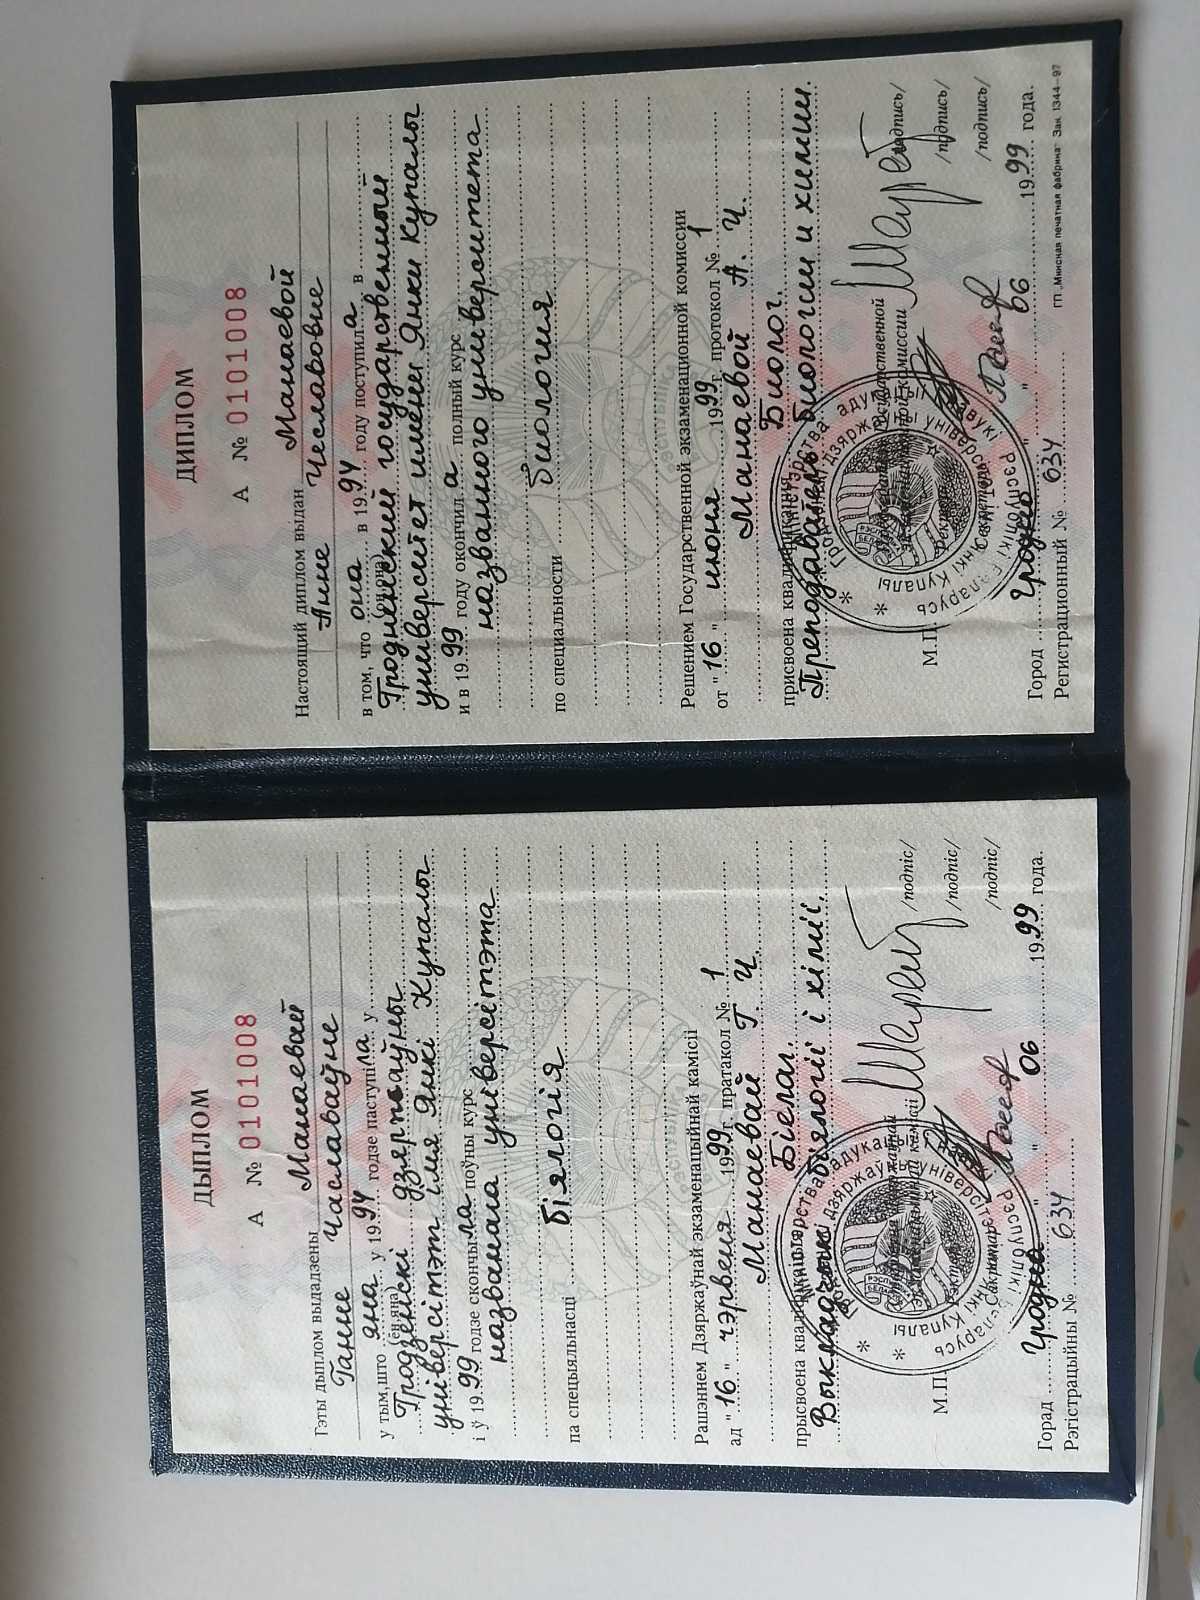 ДЫПЛОМ
А № 0101008
Гэты дыплом выдадзены Манаевай
Ганне Чаславаўне
у тым, што яна у 1994 годзе паступіла у
(ён, яна)
Гродзенскі дзяржаўны
універсітэт імя Янкі Купалы
і ў 1999 годзе скончыла поўны курс
названага універсітэта
па спецыяльнасці біялогія
Рашэннем Дзяржаўнай экзаменацыйнай камісіі
ад "16" чэрвеня 1999 г. пратакол № 1
Манаевай Г. Ч.
прысвоена кваліфікацыя Біёлаг.
Выкладчык біялогіі і хіміі.
/подпіс/
/подпіс/
М.П.
/подпіс/
Горад Гродна " " 06 1999 года.
Рэгістрацыйны № 634
ДИПЛОМ
А № 0101008
Настоящий диплом выдан Манаевой
Анне Чеславовне
в том, что она в 1994 году поступила в
(он, она)
Гродненский государственный
университет имени Янки Купалы
и в 1999 году окончила полный курс
названного университета
по специальности Биология
Решением Государственной экзаменационной комиссии
от "16" июня 1999 г. протокол № 1
Манаевой А. Ч.
присвоена квалификация Биолог.
Преподаватель биологии и химии.
/подпись/
/подпись/
М.П.
/подпись/
Город Гродно " " 06 1999 года.
Регистрационный № 634
ГП „Минская печатная фабрика" Зак. 1344—97